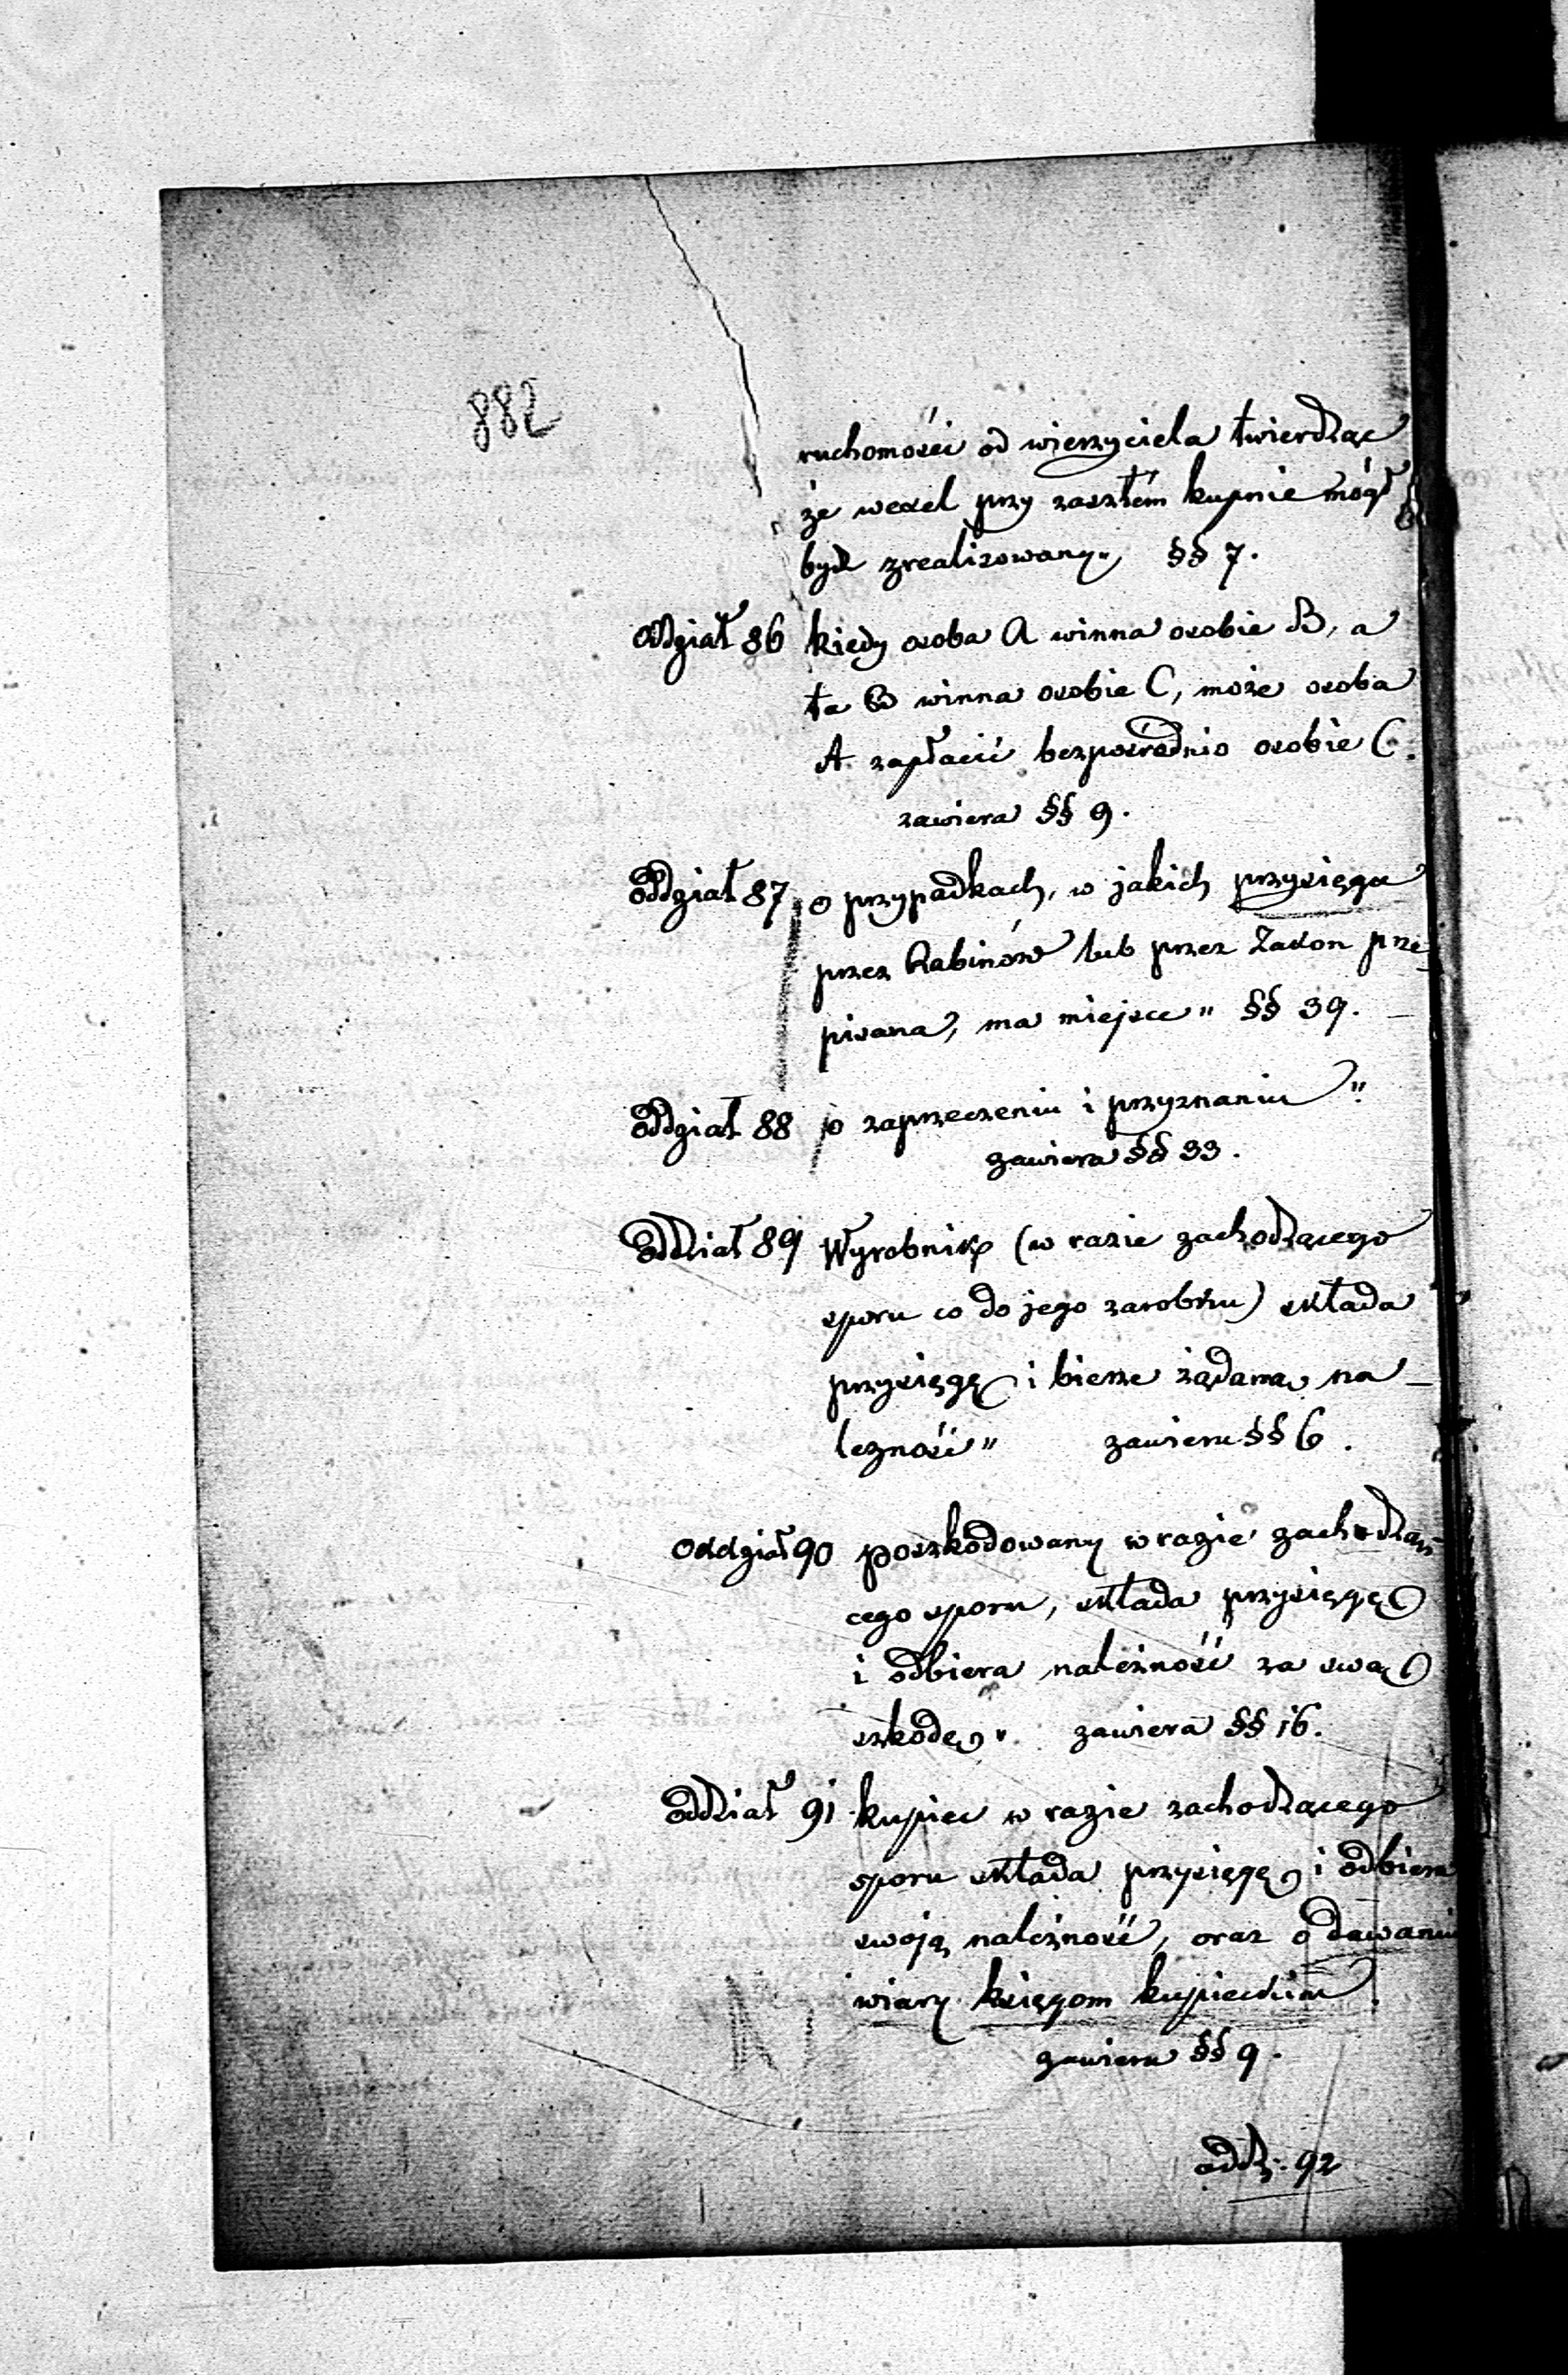 882
ruchomości od wierzyciela twierdząc
że wexel przy zaszłém kupnie mógł
być zrealizowany„ §§ 7.
Oddział 86 kiedy osoba A winna osobie B, a
ta B winna osobie C, może osoba
A zapłacić bezpośrednio osobie C.
zawiera §§ 9.
Oddział 87 o przypadkach, w jakich przysięga
przez Rabinów lub przez Zakon prze
pisana, ma miejsce" §§ 39.
Oddział 88 o zaprzeczeniu i przyznaniu"
zawiera §§ 33.
Oddział 89 Wyrobnik (w razie zachodzącego
sporu co do jego zarobku) składa
przysięgę i bierze żądaną na-
leżność" zawiera §§ 6.
Oddział 90 poszkodowany w razie zachodzą-
cego sporu, składa przysięgę
i odbiera należność za swą
szkodę". zawiera §§ 16.
Oddział 91 kupiec w razie zachodzącego
sporu składa przysięgę i odbiera
swoją należność, oraz o dawaniu
wiary księgom kupieckim
zawiera §§ 9.
oddz: 92